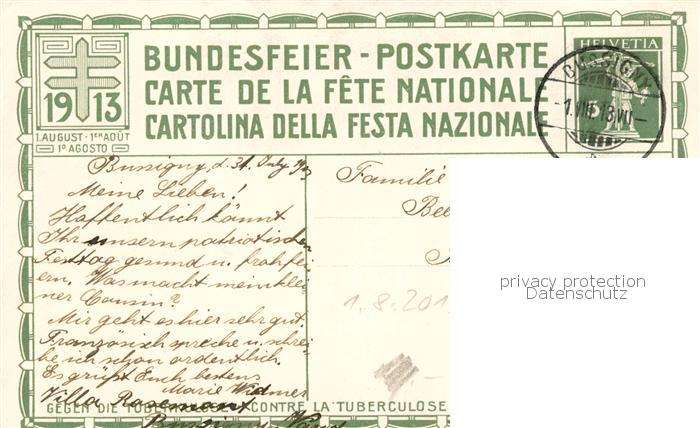 BUNDESFEIER - POSTKARTE
CARTE DE LA FÊTE NATIONALE
CARTOLINA DELLA FESTA NAZIONALE
1913
1. AUGUST - 1ER AOÛT
1º AGOSTO
HELVETIA
BUSSIGNY
-1.VIII.13.VII-
Bussigny, d. 31. July 1913
Meine Lieben!
Haffentlich könnt
Ihr unsern patriotischen
Festtag gesund u. froh fei-
ern. Was macht mein klei-
ner Cousin?
Mir geht es hier sehr gut.
Französisch spreche u. schrei-
be ich schon ordentlich.
Es grüßt Euch bestens
Marie Widmer
Villa Rasemant
Bussigny Vaud
Familie
Bee
1.8.201
privacy protection
Datenschutz
GEGEN DIE TUBERKULOSE CONTRE LA TUBERCULOSE